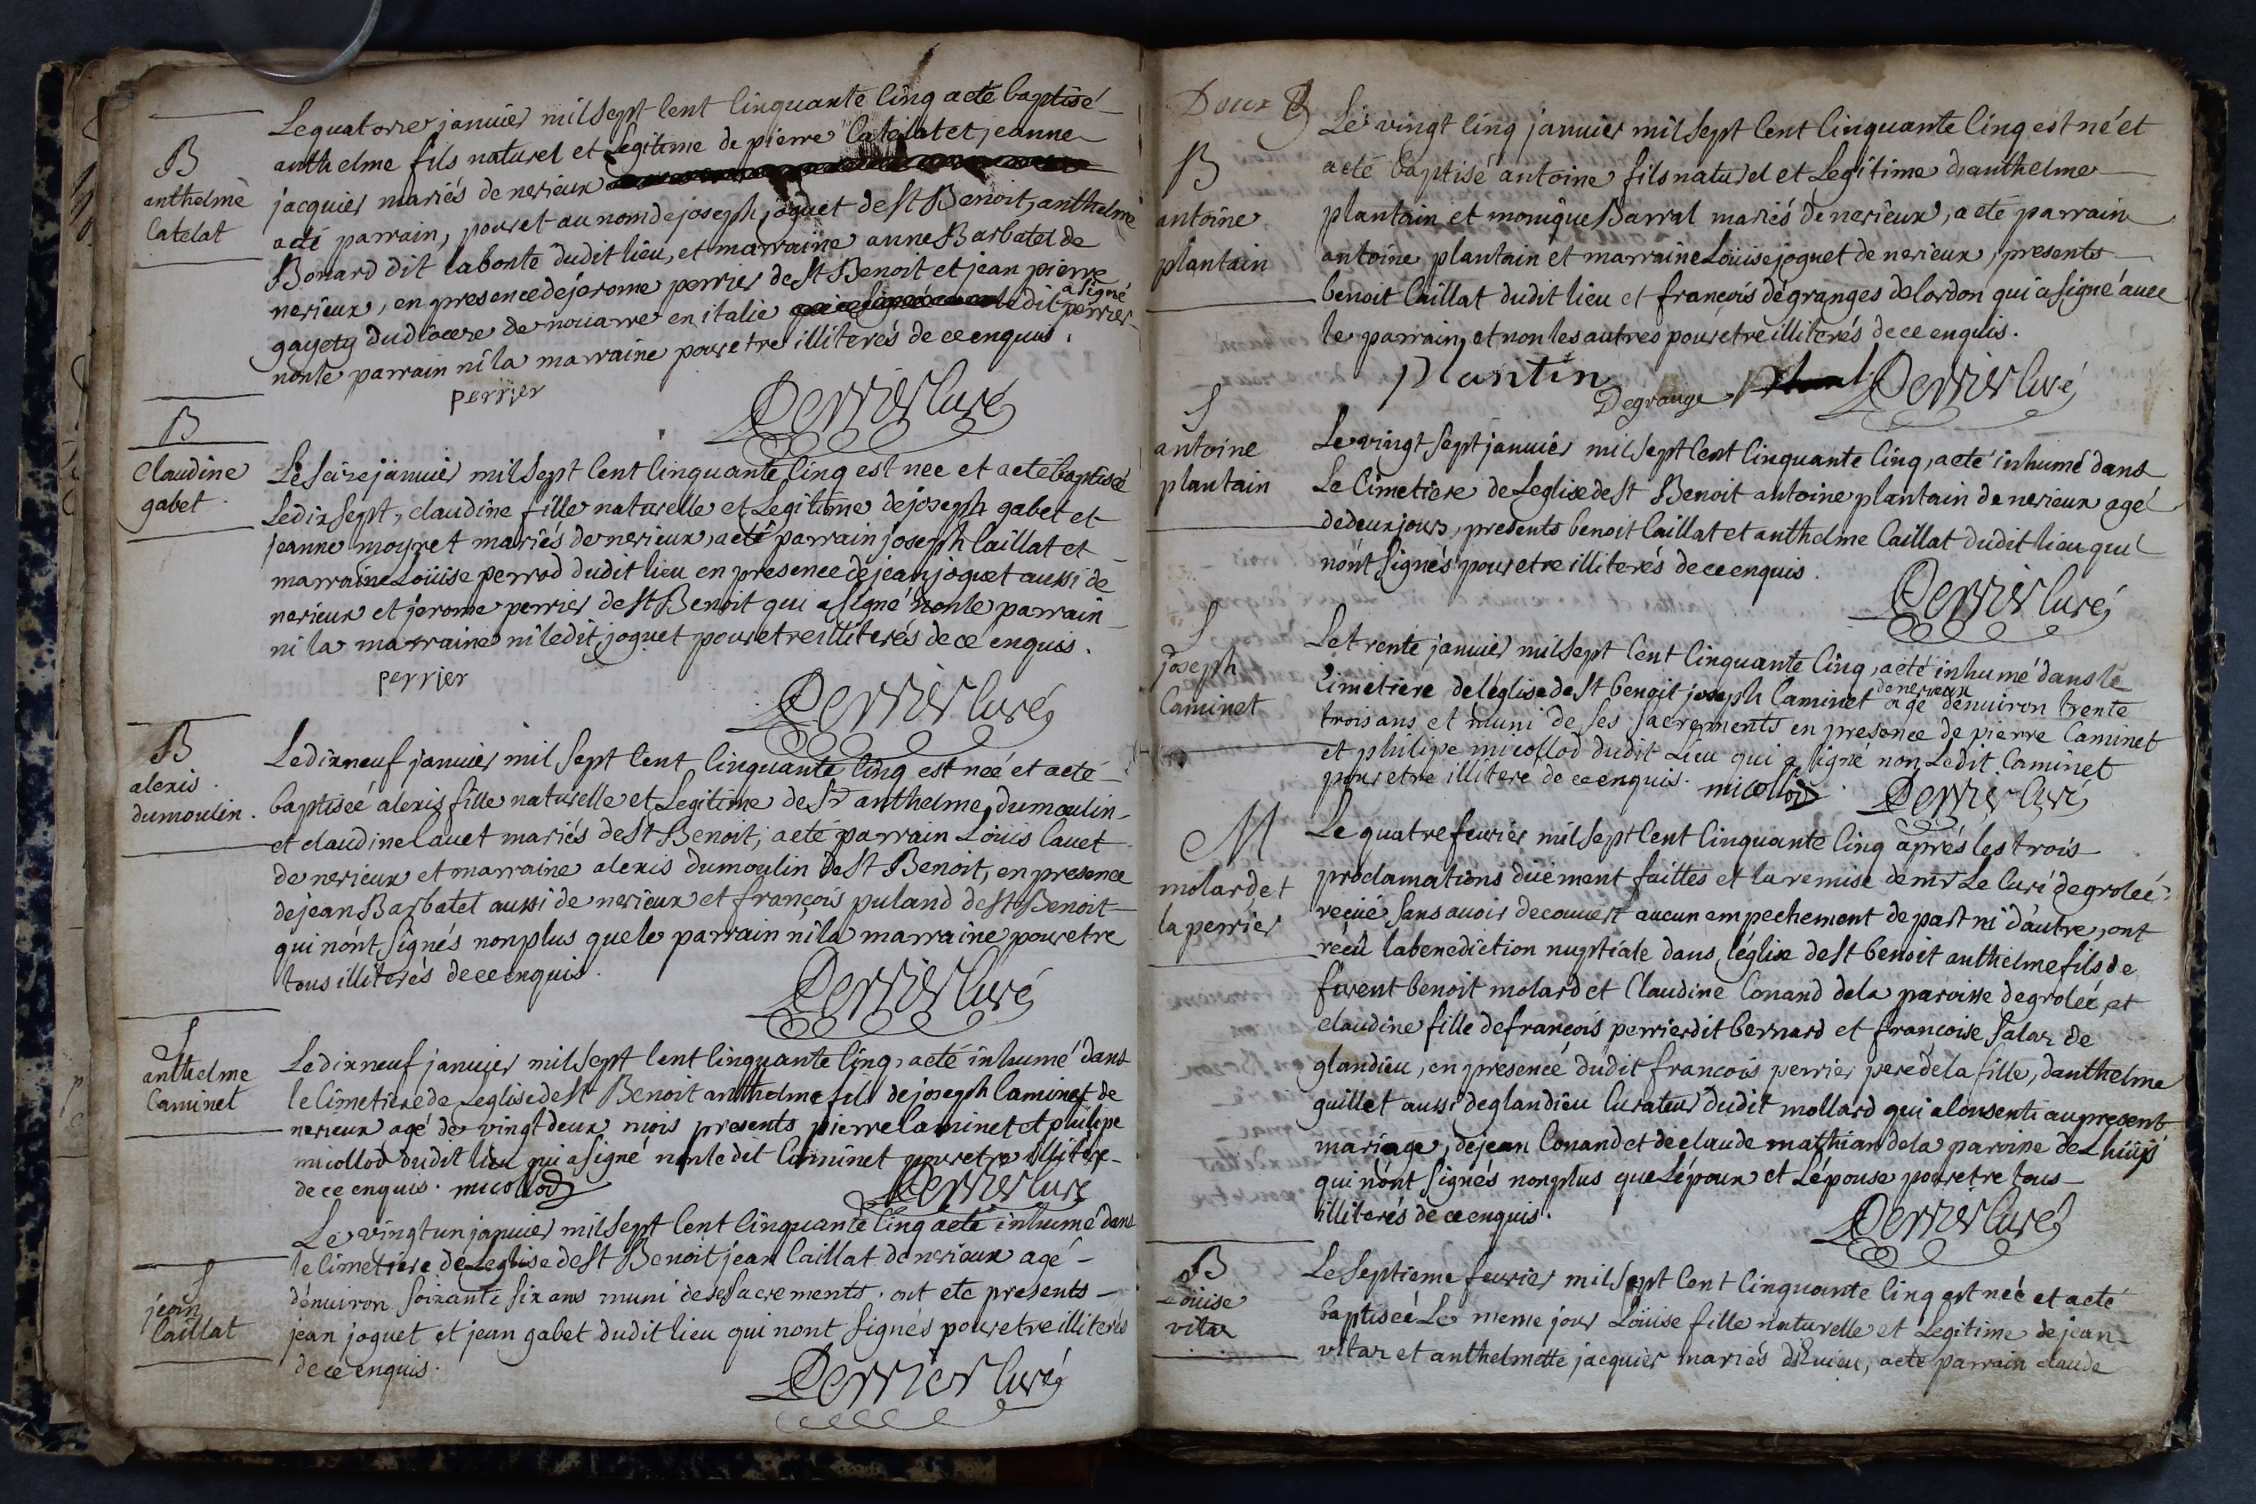 B
anthelme
Catelat
Le quatorze janvier mil sept cent cinquante cinq a eté baptisé
anthelme fils naturel et Legitime de pierre Catelat et jeanne
jacquier mariés de nerieux
a eté parrain, pour et au nom de joseph joguet de st Benoit, anthelme
Bonard dit labonte dudit lieu, et marraine anne Barbatet de
nerieux, en presence de jérome perrier de st Benoit et jean pierre
gayety du diocere de nouarre en italie ledit perrier a signé
non le parrain ni la marraine pour etre illiterés de ce enquis.
perrier
Perrier Curé
B
Claudine
gabet
Le seize janvier mil sept cent cinquante cinq est nee et a eté baptisé
Le dix sept, claudine fille naturelle et Legitime de joseph gabet et
jeanne moyret mariés de nerieux, a eté parrain joseph Caillat et
marraine Loüise perrod dudit lieu en presence de jean joguet aussi de
nerieux et jerome perrier de st Benoit qui a signé non le parrain
ni la marraine ni ledit joguet pour etre illiterés de ce enquis.
perrier
Perrier Curé
B
alexis
dumoulin.
Le dix neuf janvier mil sept cent cinquante cinq est neé et a eté
baptiseé alexis fille naturelle et Legitime de Sr anthelme dumoulin
et claudine Cauet mariés de st Benoit, a eté parrain Loüis Cauet
de nerieux et marraine alexis dumoulin de st Benoit, en presence
de jean Barbatet aussi de nerieux et françois puland de st Benoit
qui n'ont signés non plus que le parrain ni la marraine pour etre
tous illiterés de ce enquis.
Perrier Curé
S
anthelme
Caminet
Le dix neuf janvier mil sept cent cinquante cinq, a eté inhumé dans
le Cimetiere de Leglise de st Benoit anthelme fils de joseph Caminet de
nerieux agé de vingt deux mois presents pierre Caminet et philipe
micollod dudit lieu qui a signé non ledit Caminet pour etre illitere
de ce enquis. micollod
Perrier Curé
S
jean
Caillat
Le vingt un janvier mil sept cent cinquante cinq a eté inhumé dans
le Cimetiere de Leglise de st Benoit jean Caillat de nerieux agé
d'enuiron soixante six ans muni de ses sacrements. ont ete presents
jean joguet et jean gabet dudit lieu qui n'ont signés pour etre illiterés
de ce enquis.
Perrier Curé
Doux
B
antoine
plantain
Le vingt cinq janvier mil sept cent cinquante cinq est né et
a eté baptisé antoine fils naturel et Legitime d'anthelme
plantain et monique Barral mariés de nerieux, a eté parrain
antoine plantain et marraine Loüise joguet de nerieux, presents
benoit Caillat dudit lieu et françois dégranges de lordon qui a signé auec
le parrain, et non les autres pour etre illiterés de ce enquis.
plantin
Degrange
Perrier Curé
S
antoine
plantain
Le vingt sept janvier mil sept cent cinquante cinq, a eté inhumé dans
Le Cimetiere de Leglise de st Benoit antoine plantain de nerieux agé
de deux jours, presents benoit Caillat et anthelme Caillat dudit lieu qui
n'ont signés pour etre illiterés de ce enquis.
Perrier Curé
S
joseph
Caminet
Le trente janvier mil sept cent cinquante cinq, a eté inhumé dans le
Cimetiere de léglise de st benoit joseph Caminet de nerieux agé d'enuiron trente
trois ans et muni de ses sacrements en presence de pierre Caminet
et philipe micollod dudit Lieu qui a signé non Ledit Caminet
pour etre illitere de ce enquis. micollod. Perrier Curé
M
molard et
la perrier
Le quatre feurier mil sept cent cinquante cinq aprés les trois
proclamations duement faittes et la remise de mr Le Curé de groleé
reçüe sans auoir decouuert aucun empechement de part ni d'autre, ont
récu la benediction nuptiale dans léglise de st benoit anthelme fils de
furent benoit molard et Claudine Conand de la paroisse de groleé et
claudine fille de françois perrier dit bernard et francoise Salar de
glandieu, en presence dudit francois perrier pere de la fille, d'anthelme
guillet aussi de glandieu Curateur dudit mollard qui a consenti au present
mariage, de jean Conand et de claude mathian de la paroisse de Lhüys
qui n'ont signés non plus que Lépoux et Lépouse pour etre tous
illiterés de ce enquis.
Perrier Curé
B
Loüise
vitar
Le septieme feurier mil sept cent cinquante cinq est neé et a eté
baptiseé Le meme jour Loüise fille naturelle et Legitime de jean
vitar et anthelmette jacquier mariés d'Evieu, a eté parrain claude